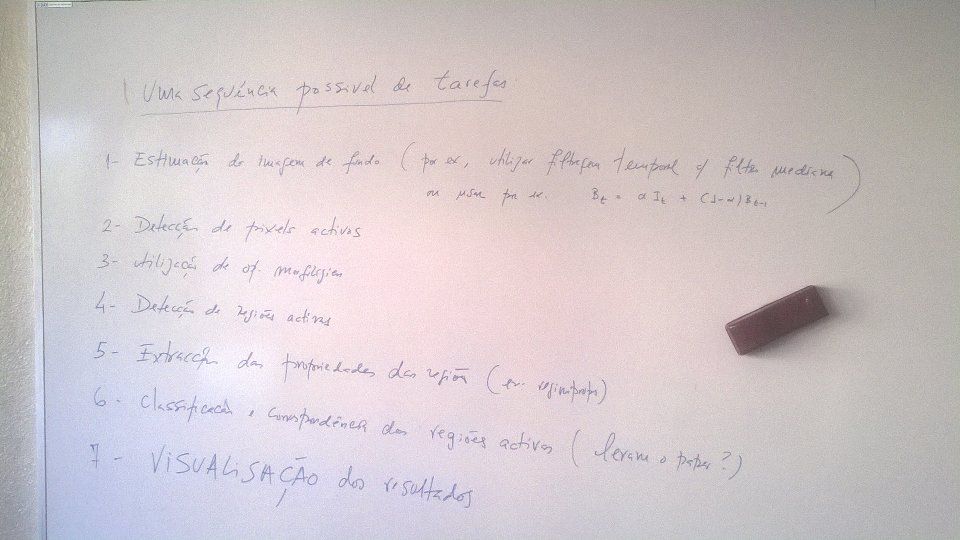 Uma sequência possivel de tarefas
1- Estimação da imagem de fundo ( por ex, utilizar filtragem temporal c/ filtro mediana
ou usar por ex. Bt = α It + (1-α)Bt-1 )
2- Detecção de pixels activos
3- utilização de op. morfológica
4- Detecção de regiões activas
5- Extracção das propriedades das região (ex. regionprops)
6- Classificação e correspondência das regiões activas ( levam o papar?)
7- VISUALISAÇÃO dos resultados